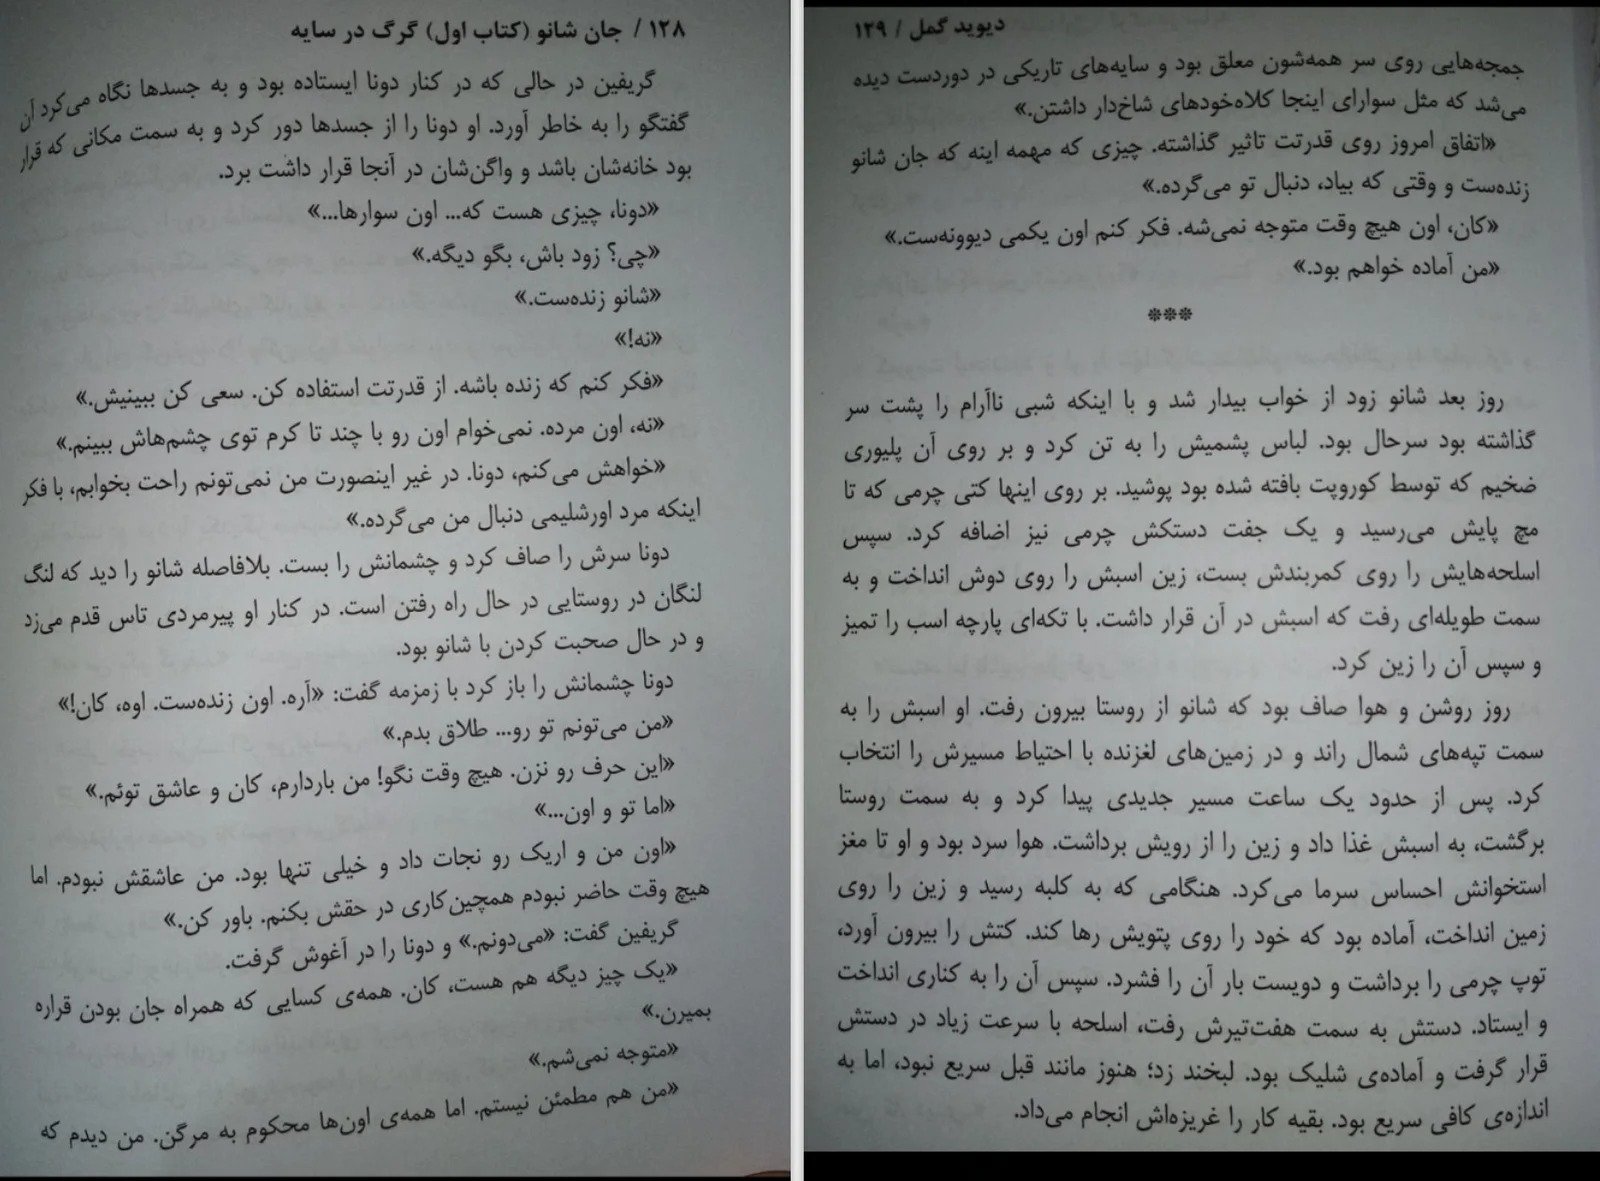 ۱۲۸ / جان شانو (کتاب اول) گرگ در سایه
گریفین در حالی که در کنار دونا ایستاده بود و به جسدها نگاه می‌کرد آن
گفتگو را به خاطر آورد. او دونا را از جسدها دور کرد و به سمت مکانی که قرار
بود خانه‌شان باشد و واگن‌شان در آنجا قرار داشت برد.
«دونا، چیزی هست که... اون سوارها...»
«چی؟ زود باش، بگو دیگه.»
«شانو زنده‌ست.»
«نه!»
«فکر کنم که زنده باشه. از قدرتت استفاده کن. سعی کن ببینیش.»
«نه، اون مرده. نمی‌خوام اون رو با چند تا کرم توی چشم‌هاش ببینم.»
«خواهش می‌کنم، دونا. در غیر اینصورت من نمی‌تونم راحت بخوابم، با فکر
اینکه مرد اورشلیمی دنبال من می‌گرده.»
دونا سرش را صاف کرد و چشمانش را بست. بلافاصله شانو را دید که لنگ
لنگان در روستایی در حال راه رفتن است. در کنار او پیرمردی تاس قدم می‌زد
و در حال صحبت کردن با شانو بود.
دونا چشمانش را باز کرد با زمزمه گفت: «آره. اون زنده‌ست. اوه، کان!»
«من می‌تونم تو رو... طلاق بدم.»
«این حرف رو نزن. هیچ وقت نگو! من باردارم، کان و عاشق توئم.»
«اما تو و اون...»
«اون من و اریک رو نجات داد و خیلی تنها بود. من عاشقش نبودم. اما
هیچ وقت حاضر نبودم همچین‌کاری در حقش بکنم. باور کن.»
گریفین گفت: «می‌دونم.» و دونا را در آغوش گرفت.
«یک چیز دیگه هم هست، کان. همه‌ی کسایی که همراه جان بودن قراره
بمیرن.»
«متوجه نمی‌شم.»
«من هم مطمئن نیستم. اما همه‌ی اون‌ها محکوم به مرگن. من دیدم که
دیوید گمل / ۱۲۹
جمجه‌هایی روی سر همه‌شون معلق بود و سایه‌های تاریکی در دوردست دیده
می‌شد که مثل سوارای اینجا کلاه‌خودهای شاخ‌دار داشتن.»
«اتفاق امروز روی قدرتت تاثیر گذاشته. چیزی که مهمه اینه که جان شانو
زنده‌ست و وقتی که بیاد، دنبال تو می‌گرده.»
«کان، اون هیچ وقت متوجه نمی‌شه. فکر کنم اون یکمی دیوونه‌ست.»
«من آماده خواهم بود.»
***
روز بعد شانو زود از خواب بیدار شد و با اینکه شبی ناآرام را پشت سر
گذاشته بود سرحال بود. لباس پشمیش را به تن کرد و بر روی آن پلیوری
ضخیم که توسط کوروپت بافته شده بود پوشید. بر روی اینها کتی چرمی که تا
مچ پایش می‌رسید و یک جفت دستکش چرمی نیز اضافه کرد. سپس
اسلحه‌هایش را روی کمربندش بست، زین اسبش را روی دوش انداخت و به
سمت طویله‌ای رفت که اسبش در آن قرار داشت. با تکه‌ای پارچه اسب را تمیز
و سپس آن را زین کرد.
روز روشن و هوا صاف بود که شانو از روستا بیرون رفت. او اسبش را به
سمت تپه‌های شمال راند و در زمین‌های لغزنده با احتیاط مسیرش را انتخاب
کرد. پس از حدود یک ساعت مسیر جدیدی پیدا کرد و به سمت روستا
برگشت، به اسبش غذا داد و زین را از رویش برداشت. هوا سرد بود و او تا مغز
استخوانش احساس سرما می‌کرد. هنگامی که به کلبه رسید و زین را روی
زمین انداخت، آماده بود که خود را روی پتویش رها کند. کتش را بیرون آورد،
توپ چرمی را برداشت و دویست بار آن را فشرد. سپس آن را به کناری انداخت
و ایستاد. دستش به سمت هفت‌تیرش رفت، اسلحه با سرعت زیاد در دستش
قرار گرفت و آماده‌ی شلیک بود. لبخند زد؛ هنوز مانند قبل سریع نبود، اما به
اندازه‌ی کافی سریع بود. بقیه کار را غریزه‌اش انجام می‌داد.